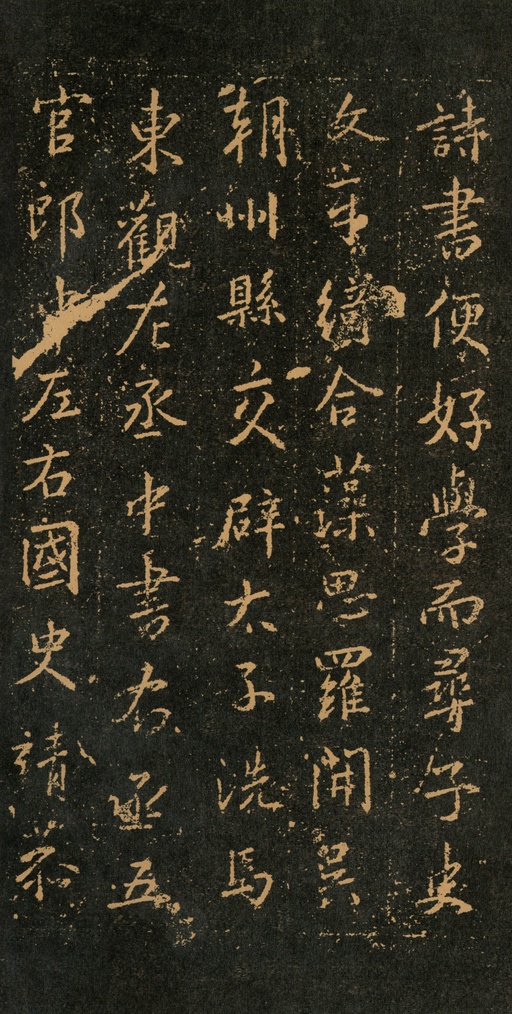 詩書便好學而尋子史
文章綺合藻思羅開吳
朝州縣交辟太子洗馬
東觀左丞中書右丞五
官郎中左右國史靖恭